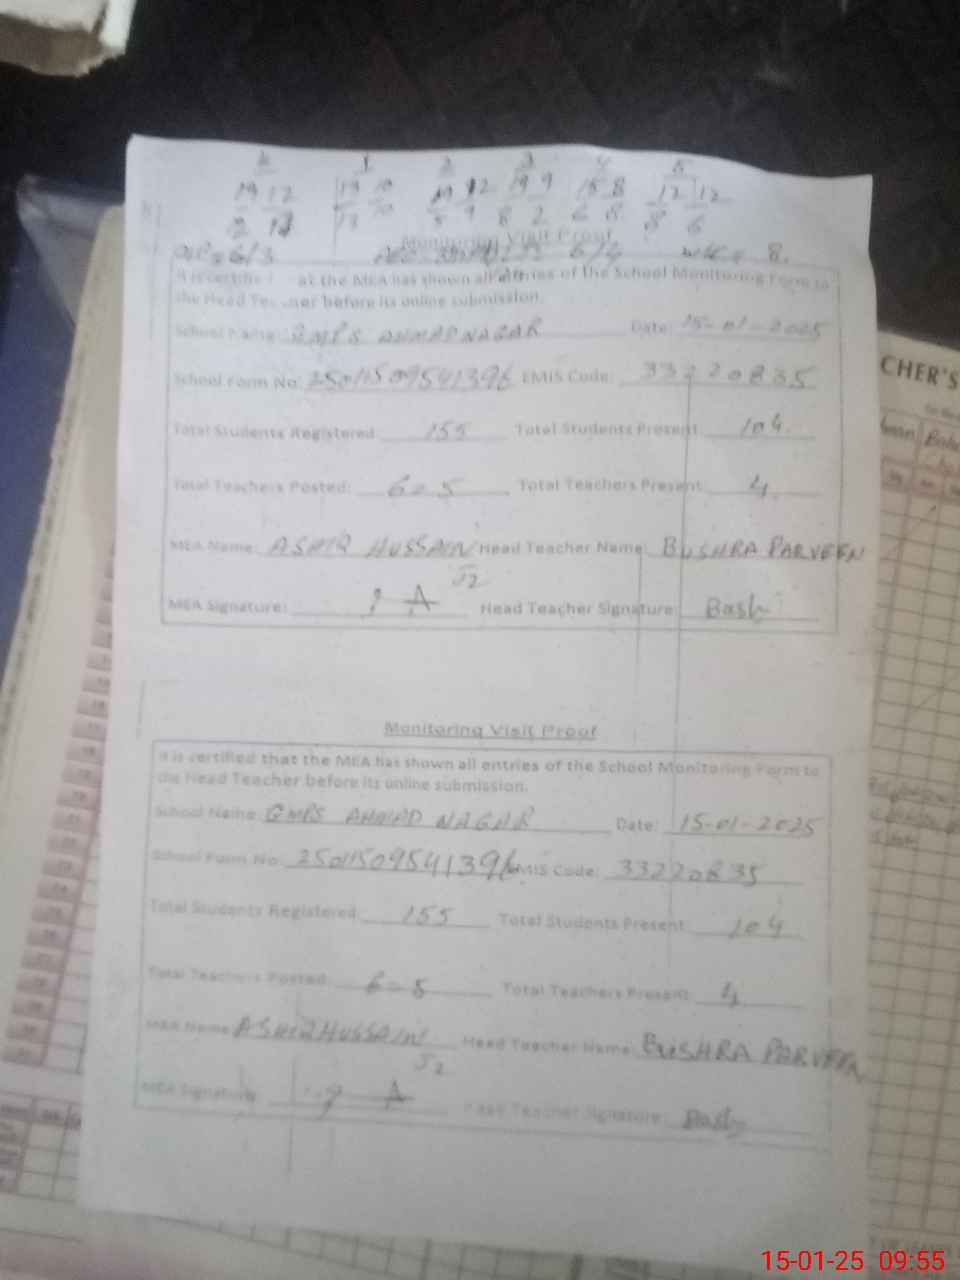 1 2 3 4 5
19 12 19 10 12 19 9 15 8 12 12
13 10 5 9 8 2 6 8 8 6
Monitoring Visit Proof
6/3 6/4 8.
It is certified at the MEA has shown all entries of the School Monitoring Form to
the Head Teacher before its online submission.
School Name: GMPS AHMAD NAGAR Date: 15-01-2025
School Form No: 25011509541396 EMIS Code: 33220835
Total Students Registered: 155 Total Students Present: 104.
Total Teachers Posted: 6=5 Total Teachers Present: 4.
MEA Name: ASHIQ HUSSAIN Head Teacher Name: BUSHRA PARVEEN
52
MEA Signature: A Head Teacher Signature: Bash
Monitoring Visit Proof
It is certified that the MEA has shown all entries of the School Monitoring Form to
the Head Teacher before its online submission.
School Name: GMPS AHMAD NAGAR Date: 15-01-2025
School Form No: 25011509541396 EMIS Code: 33220835
Total Students Registered: 155 Total Students Present: 104
Total Teachers Posted: 6=5 Total Teachers Present: 4
MEA Name: ASHIQ HUSSAIN Head Teacher Name: BUSHRA PARVEEN
52
MEA Signature: A Head Teacher Signature: Bash
CHER'S
15-01-25 09:55